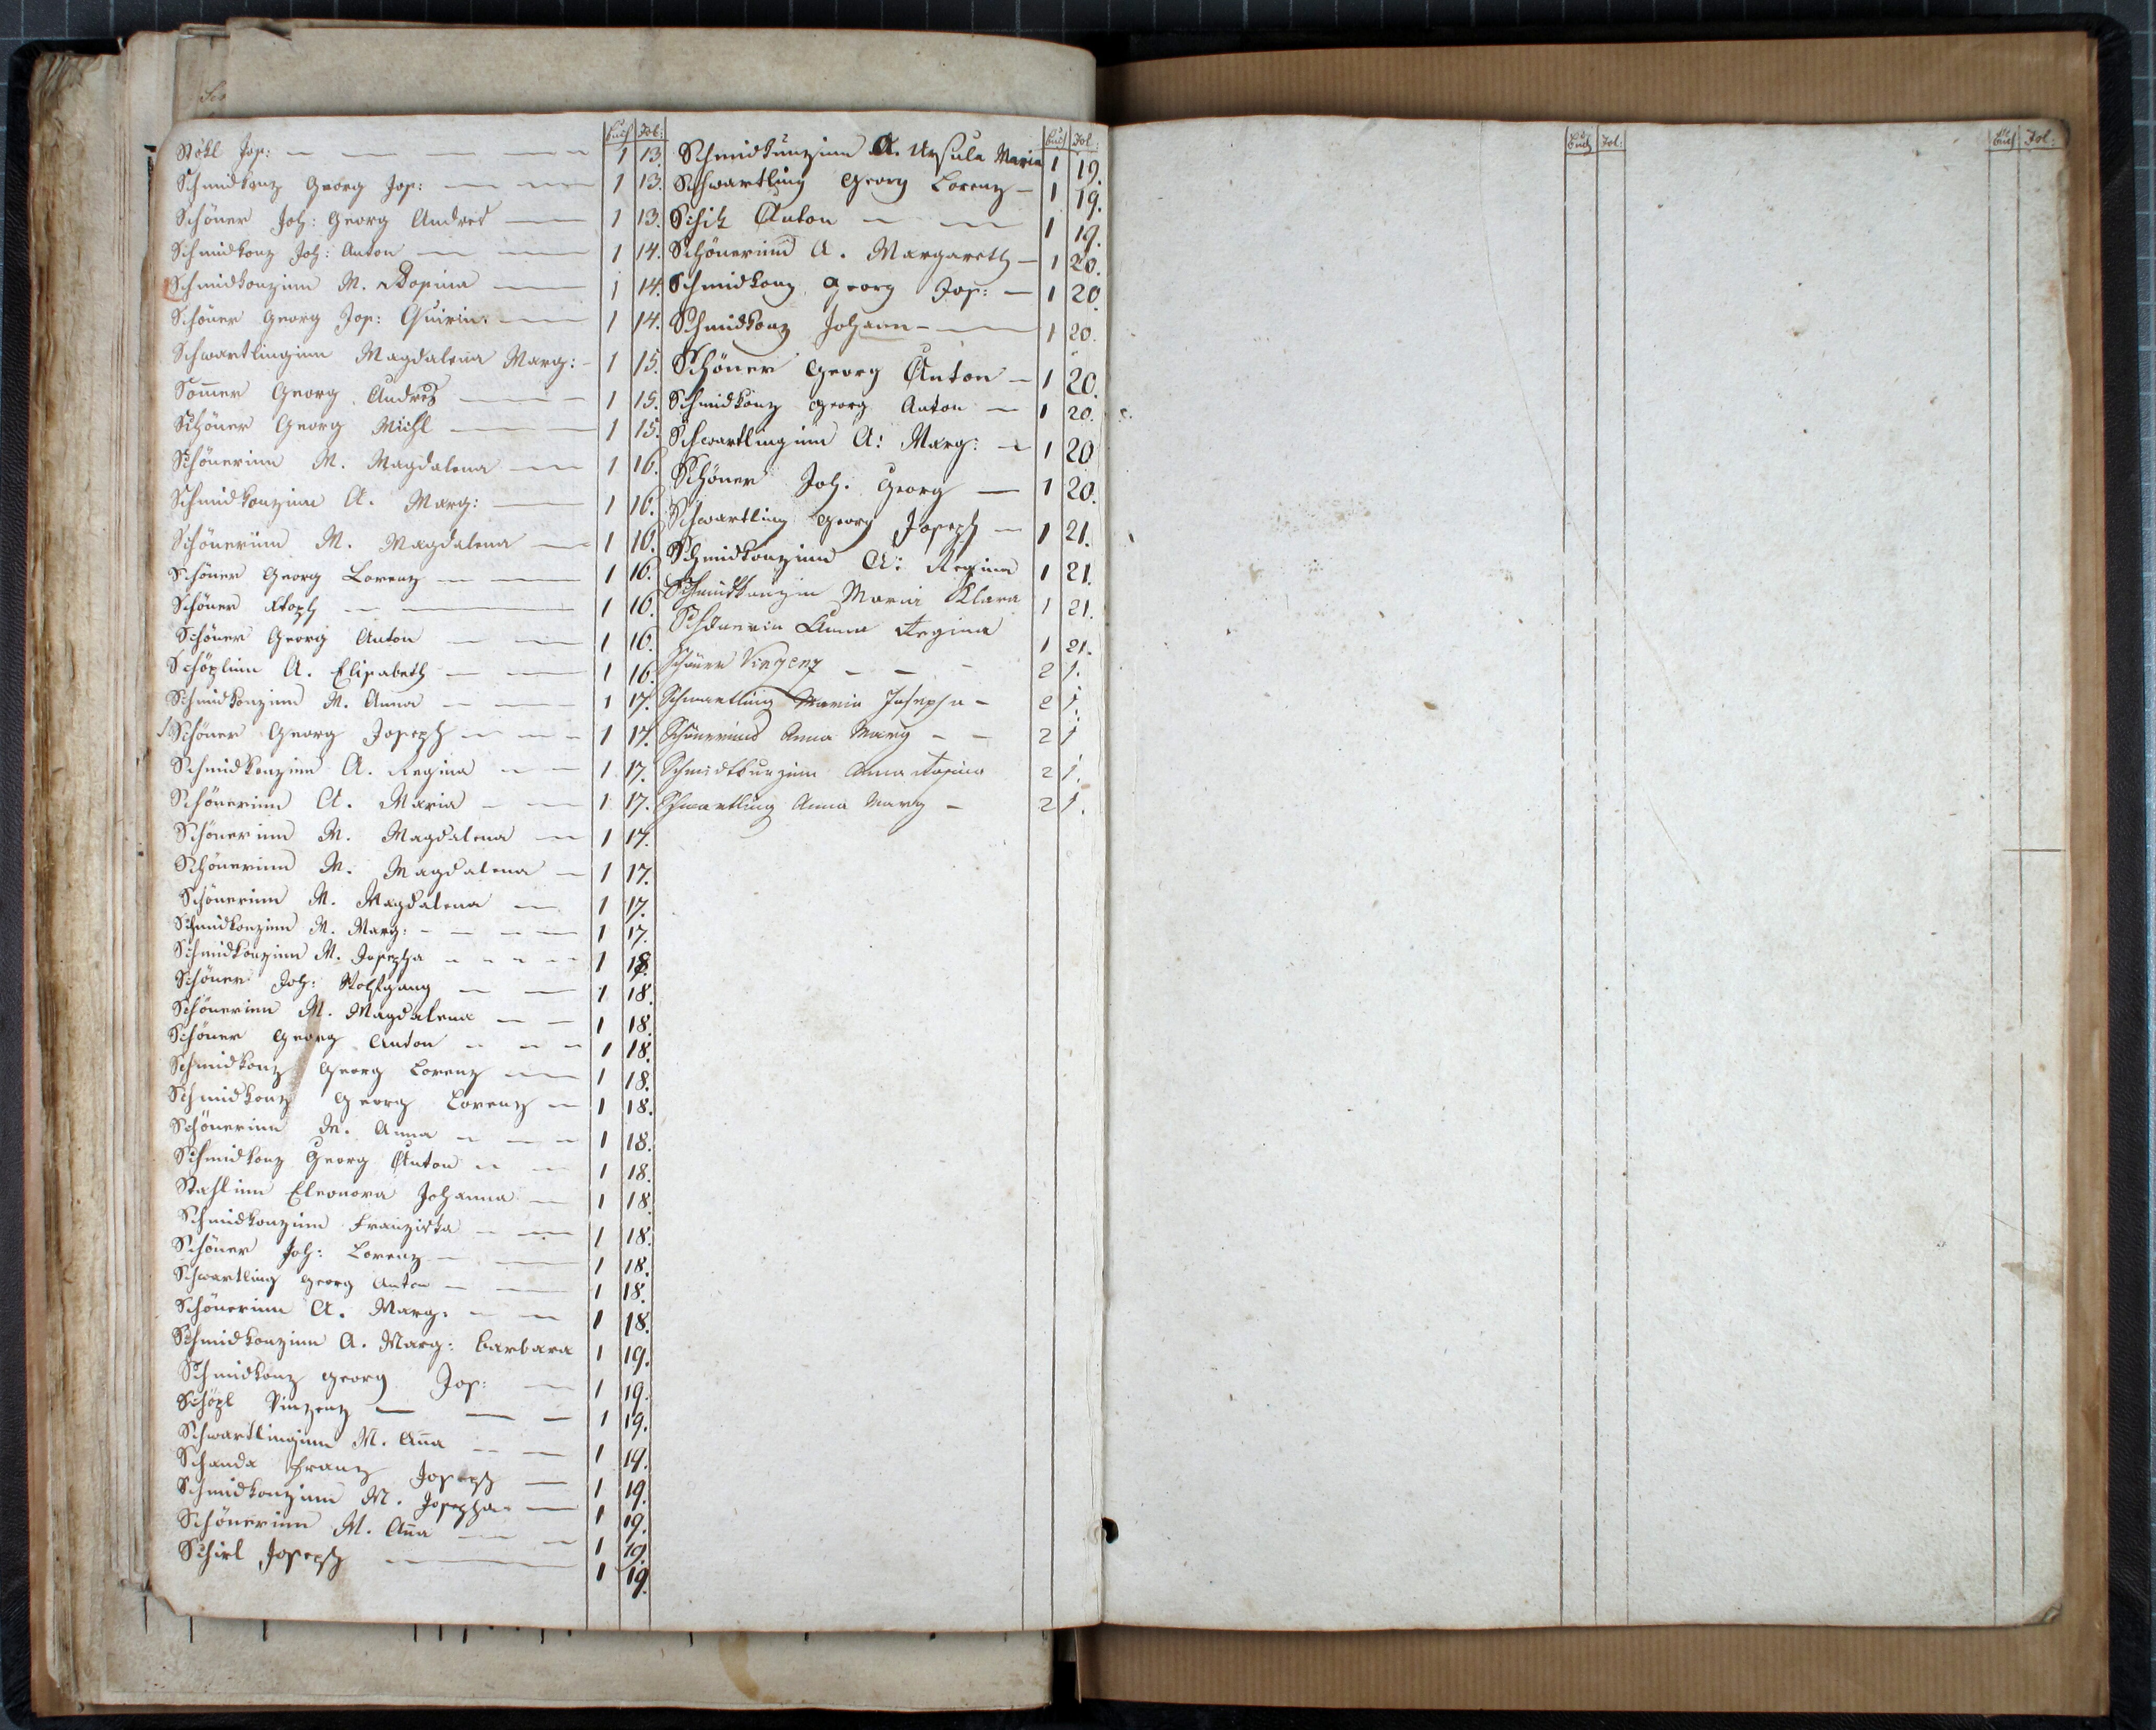 Buch Fol:
Stökl Jos: 1 13.
Schmidkonz Georg Jos: 1 13.
Schöner Joh: Georg Andres 1 13.
Schmidkonz Joh: Anton 1 14.
Schmidkonzinn M. Rosina 1 14.
Schöner Georg Jos: Quirin: 1 14.
Schwartlinginn Magdalena Marg: 1 15.
Som̅er Georg Andres 1 15.
Schöner Georg Michl 1 15.
Schönerinn M. Magdalena 1 16.
Schmidkonzinn A. Marg: 1 16.
Schönerinn M. Magdalena 1 16.
Schöner Georg Lorenz 1 16.
Schöner 1 16.
Schöner Georg Anton 1 16.
A. Elisabeth 1 16.
Schmidkonzinn M. Anna 1 17.
Schöner Georg Joseph 1 17.
Schmidkonzinn A. Regina 1 17.
Schönerinn A. Maria 1 17.
Schönerinn M. Magdalena 1 17.
Schönerinn M. Magdalena 1 17.
Schönerinn M. Magdalena 1 17.
Schmidkonzinn M. Marg: 1 17.
Schmidkonzinn M. Josepha 1 18.
Schöner Joh: Wolfgang 1 18.
Schönerinn M. Magdalena 1 18.
Schöner Georg Anton 1 18.
Schmidkonz Georg Lorenz 1 18.
Schmidkonz Georg Lorenz 1 18.
Schönerinn M. Anna 1 18.
Schmidkonz Georg Anton 1 18.
Stahlinn Eleonora Johanna 1 18.
Schmidkonzinn Franziska 1 18.
Schöner Joh: Lorenz 1 18.
Schwartling Georg Anton 1 18.
Schönerinn A. Marg: 1 18.
Schmidkonzinn A. Marg: Barbara 1 19.
Schmidkonz Georg Jos: 1 19.
Vinzenz 1 19.
Schwartlinginn M. An̅a 1 19.
Schanda Franz Joseph 1 19.
Schmidkonzinn M. Josepha 1 19.
Schönerinn M. An̅a 1 19.
Schirl Joseph 1 19.
Buch Fol:
Schmidkunzinn A. Ursula Maria 1 19.
Schwartling Georg Lorenz 1 19.
Schik Anton 1 19.
Schönerinn A. Margareth 1 20.
Schmidkonz Georg Jos: 1 20
Schmidkonz Johann 1 20.
Schöner Georg Anton 1 20.
Schmidkonz Georg Anton 1 20.
Schwartlinginn A: Marg: 1 20
Schöner Joh. Georg 1 20.
Schwartling Georg Joseph 1 21.
Schmidkonzinn A: Regina 1 21.
Maria Klara 1 21.
Schönerin Anna Regina 1 21.
Schöner Vinzenz 2 1.
Schwartling Maria Josepha 2 1.
Schönerinn Anna Marg 2 1
Anna Rosina 2 1.
Schwartling Anna Marg 2 1.
Buch Fol:
Buch Fol: